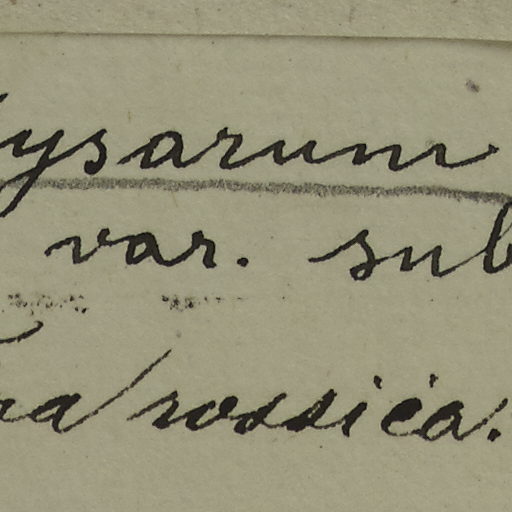 ysarum
var. sub
rossica.